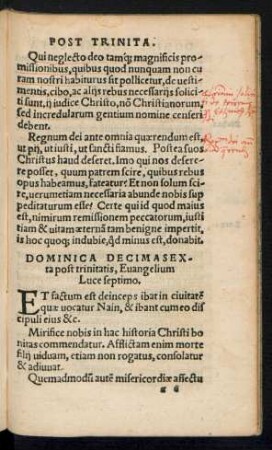 POST TRINITA.
Qui neglecto deo tamq; magnificis pro-
missionibus, quibus quod nunquam non cu
ram nostri habiturus sit pollicetur, de uesti-
mentis, cibo, ac alijs rebus necessarijs solici
ti sunt, ij iudice Christo, nõ Christianorum,
sed incredularum gentium nomine censeri
debent.
Regnum dei ante omnia quærendum est,
ut pij, ut iusti, ut sancti fiamus. Postea suos
Christus haud deseret. Imo qui nos desere-
re posset, quum patrem scire, quibus rebus
opus habeamus, fateatur? Et non solum sci-
re, uerumetiam necessaria abunde nobis sup
peditaturum esse? Certe qui id quod maius
est, nimirum remissionem peccatorum, iusti
tiam & uitam æternã tam benigne impertit,
is hoc quoq; indubie, qd minus est, donabit.
DOMINICA DECIMASEX-
ta post trinitatis, Euangelium
Luce septimo.
ET factum est deinceps ibat in ciuitatẽ
quæ uocatur Nain, & ibant cum eo dis
cipuli eius &c.
Mirifice nobis in hac historia Christi bo
nitas commendatur. Afflictam enim morte
filij uiduam, etiam non rogatus, consolatur
& adiuuat.
Quemadmodũ autẽ misericordiæ affectu